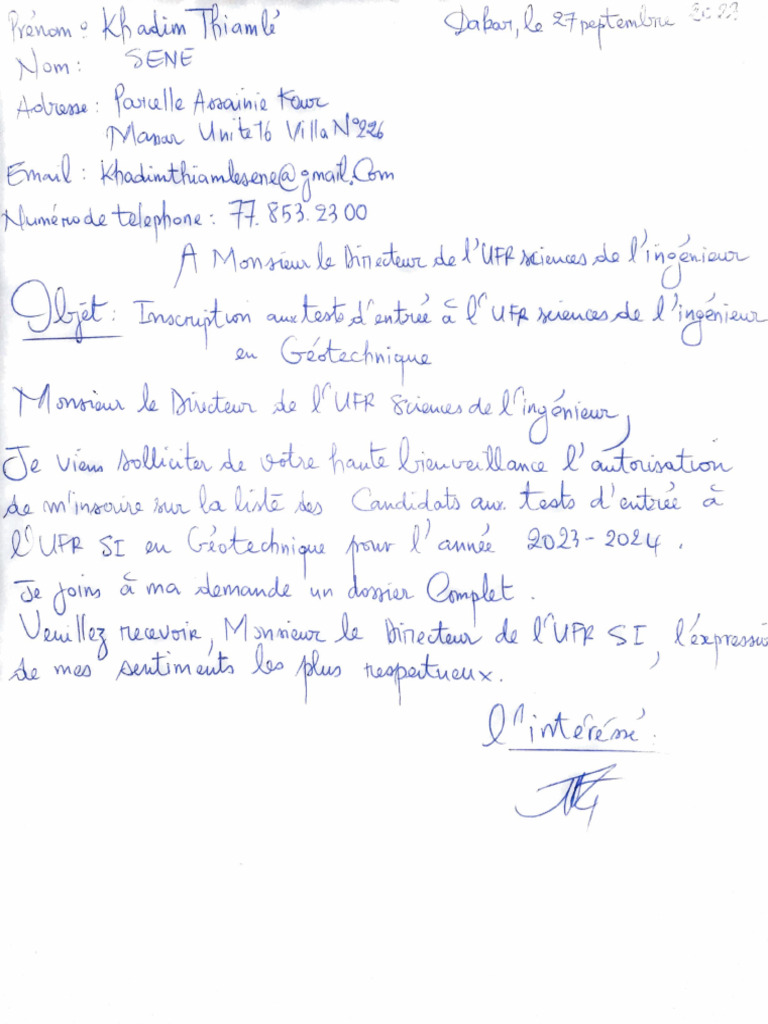 Prénom : Khadim Thiamlé
Dakar, le 27 septembre 2023
Nom : SENE
Adresse : Parcelle Assainie Keur
Massar Unite 16 Villa N°226
Email : Khadimthiamlesene@gmail.Com
Numéro de telephone : 77.853.23 00
A Monsieur le Directeur de l'UFR sciences de l'ingénieur
Objet : Inscription aux tests d'entrée à l'UFR sciences de l'ingénieur
en Géotechnique
Monsieur le Directeur de l'UFR Sciences de l'ingénieur,
Je viens solliciter de votre haute bienveillance l'autorisation
de m'inscrire sur la liste des Candidats aux tests d'entrée à
l'UFR SI en Géotechnique pour l'année 2023-2024.
Je joins à ma demande un dossier Complet.
Veuillez recevoir, Monsieur le Directeur de l'UFR SI, l'expressi
de mes sentiments les plus respectueux.
l'intéréssé.